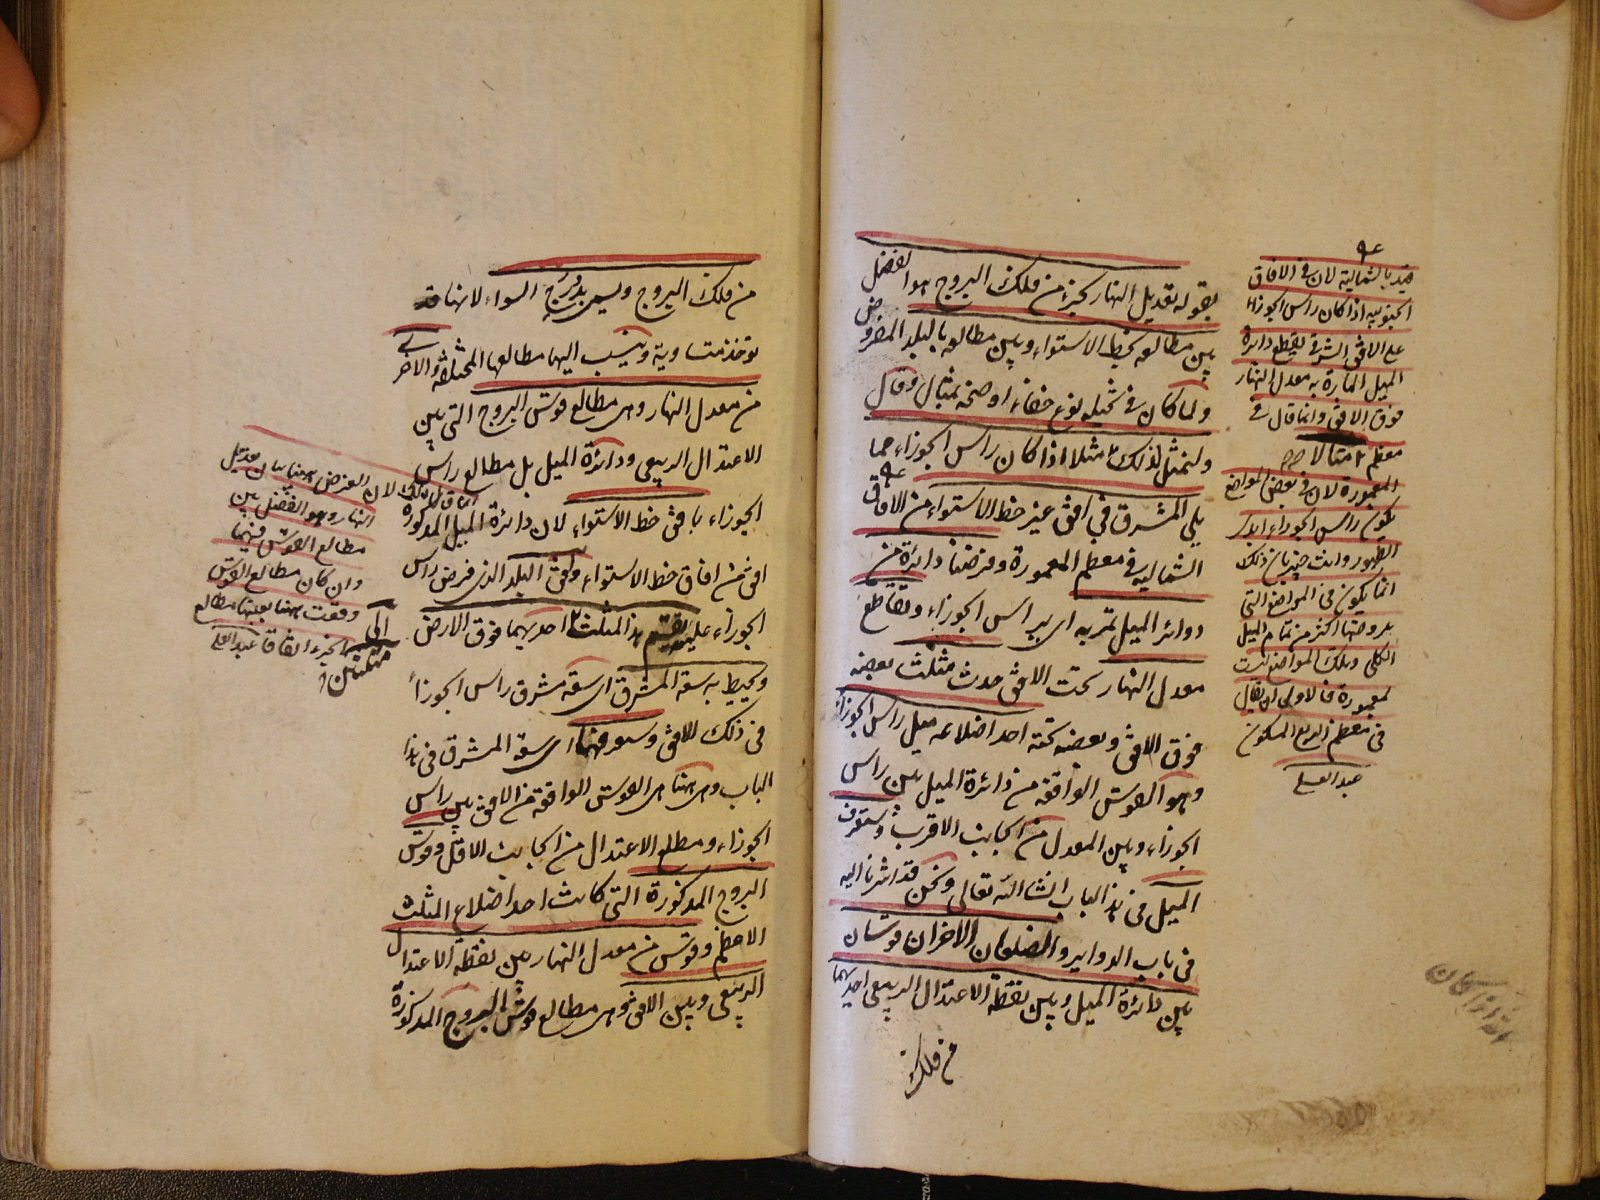 بقوله تعديل النهار لجزء من فلك البروج هو الفضل
بين مطالعه بخط الاستواء وبين مطالعه بالبلد المفروض
ولما كان في تخيله نوع خفاء اوضحه بمثال وقال
ولنمثل لذلك مثلا اذا كان راس الجوزاء مما
يلي المشرق في افق غير خط الاستواء من الافاق
الشمالية في معظم المعمورة وفرضنا دائرة من
دوائر الميل تمر به اى براس الجوزاء وتقاطع
معدل النهار تحت الافق حدث مثلث بعضه
فوق الافق وبعضه تحته احد اضلاعه ميل راس الجوزاء
وهو القوس الواقعة من دائرة الميل بين راس
الجوزاء وبين المعدل من الجانب الاقرب وستعرف
الميل في هذا الباب انشا الله تعالى ونحن قد اشرنا اليه
في باب الدواير والضلعان الاخران قوسان
بين دائرة الميل وبين نقطة الاعتدال الربيعى احديهما
من فلك
قيد بالشمالية لان في الافاق
الجنوبية اذا كان راس الجوزاء
على الافق الشرقى يقطع دائرة
الميل المارة به معدل النهار
فوق الافق وانما قال في
معظم
المعمورة لان في بعض المواضع
يكون راس الجوزاء ابدى
الظهور وانت خبير بان ذلك
انما يكون في المواضع التى
عروضها اكثر من تمام الميل
الكلى وتلك المواضع ليست
بمعمورة فالاولى ان يقال
في معظم الربع المسكون
عبد العلى
من فلك البروج ويسمى بدرج السواء لانها
توخذ متساوية وينسب اليها مطالعها المختلفة والاخرى
من معدل النهار وهى مطالع قوس البروج التى بين
الاعتدال الربيعى ودائرة الميل بل مطالع راس
الجوزاء بافق خط الاستواء لان دائرة الميل المذكورة
افق من افاق خط الاستواء وافق البلد الذى فرض راس
الجوزاء عليه يقسم هذا المثلث احديهما فوق الارض
ويحيط به سعة المشرق اى سعة مشرق راس الجوزاء
في ذلك الافق وستعرفها اى سعة المشرق في هذا
الباب وهى ههنا هى القوس الواقعة من الافق بين راس
الجوزاء ومطلع الاعتدال من الجانب الاقل وقوس
البروج المذكورة التى كانت احد اضلاع المثلث
الاعظم وقوس من معدل النهار بين نقطة الاعتدال
الربيعى وبين الافق وهى مطالع قوس البروج المذكورة
انما قال ذلك لان الغرض ههنا بيان تعديل
النهار وهو الفضل بين
مطالع القوس فيهما
وان كان مطالع القوس
وقعت ههنا بعينها مطالع
الجزء اتفاقا عبد العلى
الى
مثلثين